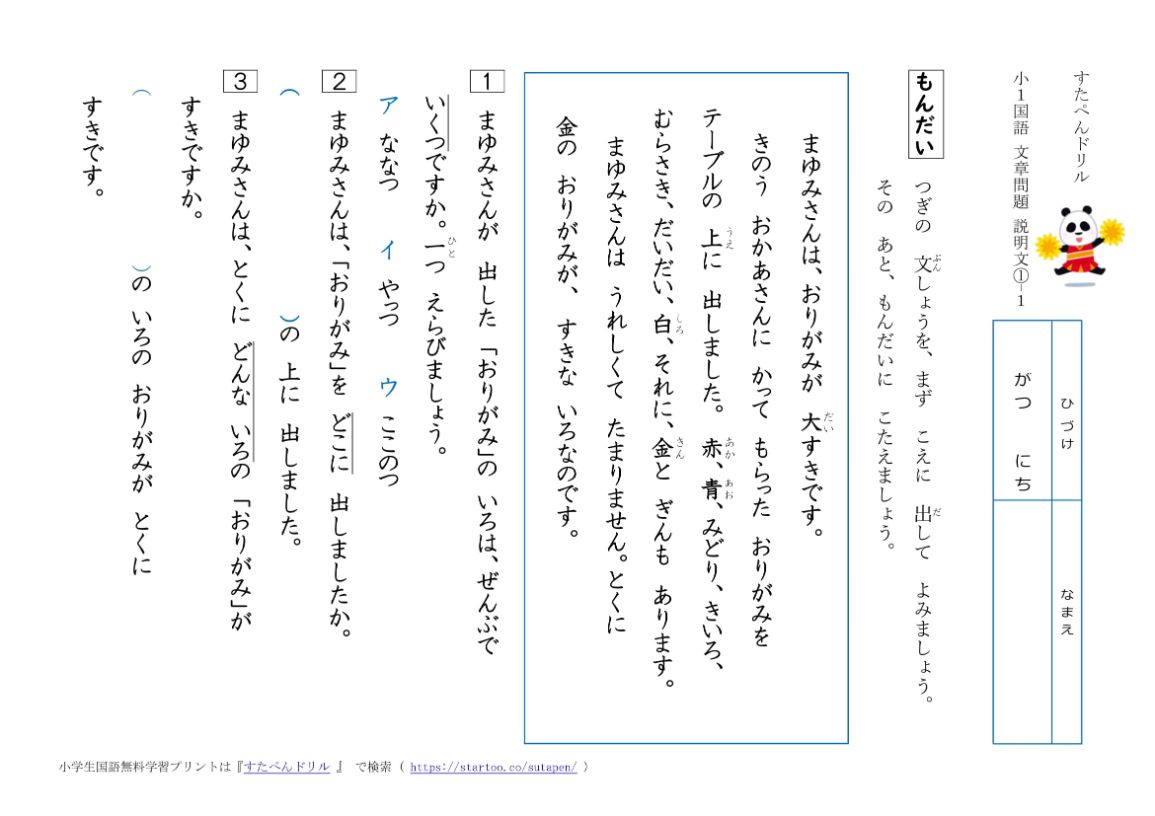 すたぺんドリル
小１国語 文章問題 説明文①－１
ひづけ
なまえ
がつ にち
もんだい
つぎの 文しょうを、まず こえに 出して よみましょう。
ぶん
だ
その あと、もんだいに こたえましょう。
まゆみさんは、おりがみが 大すきです。
だい
きのう おかあさんに かって もらった おりがみを
テーブルの 上に 出しました。赤、青、みどり、きいろ、
うえ
あか
あお
むらさき、だいだい、白、それに、金と ぎんも あります。
しろ
きん
まゆみさんは うれしくて たまりません。とくに
金の おりがみが、 すきな いろなのです。
1 まゆみさんが 出した「おりがみ」の いろは、ぜんぶで
いくつですか。一つ えらびましょう。
ひと
ア ななつ イ やっつ ウ ここのつ
2 まゆみさんは、「おりがみ」を どこに 出しましたか。
（ ）の 上に 出しました。
3 まゆみさんは、とくに どんな いろの「おりがみ」が
すきですか。
（ ）の いろの おりがみが とくに
すきです。
小学生国語無料学習プリントは『すたぺんドリル 』 で検索（ https://startoo.co/sutapen/ ）